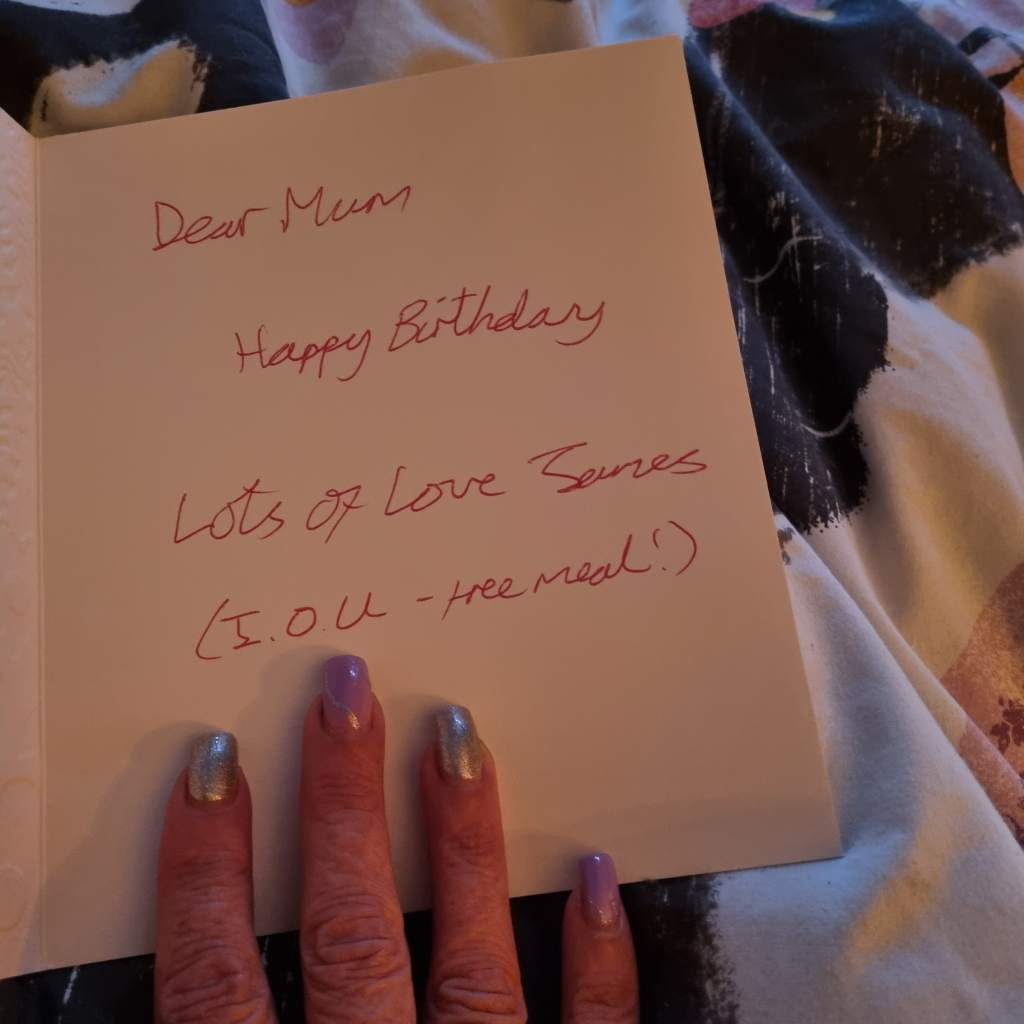 Dear Mum
Happy Birthday
Lots of Love James
(I.O.U - free meal!)